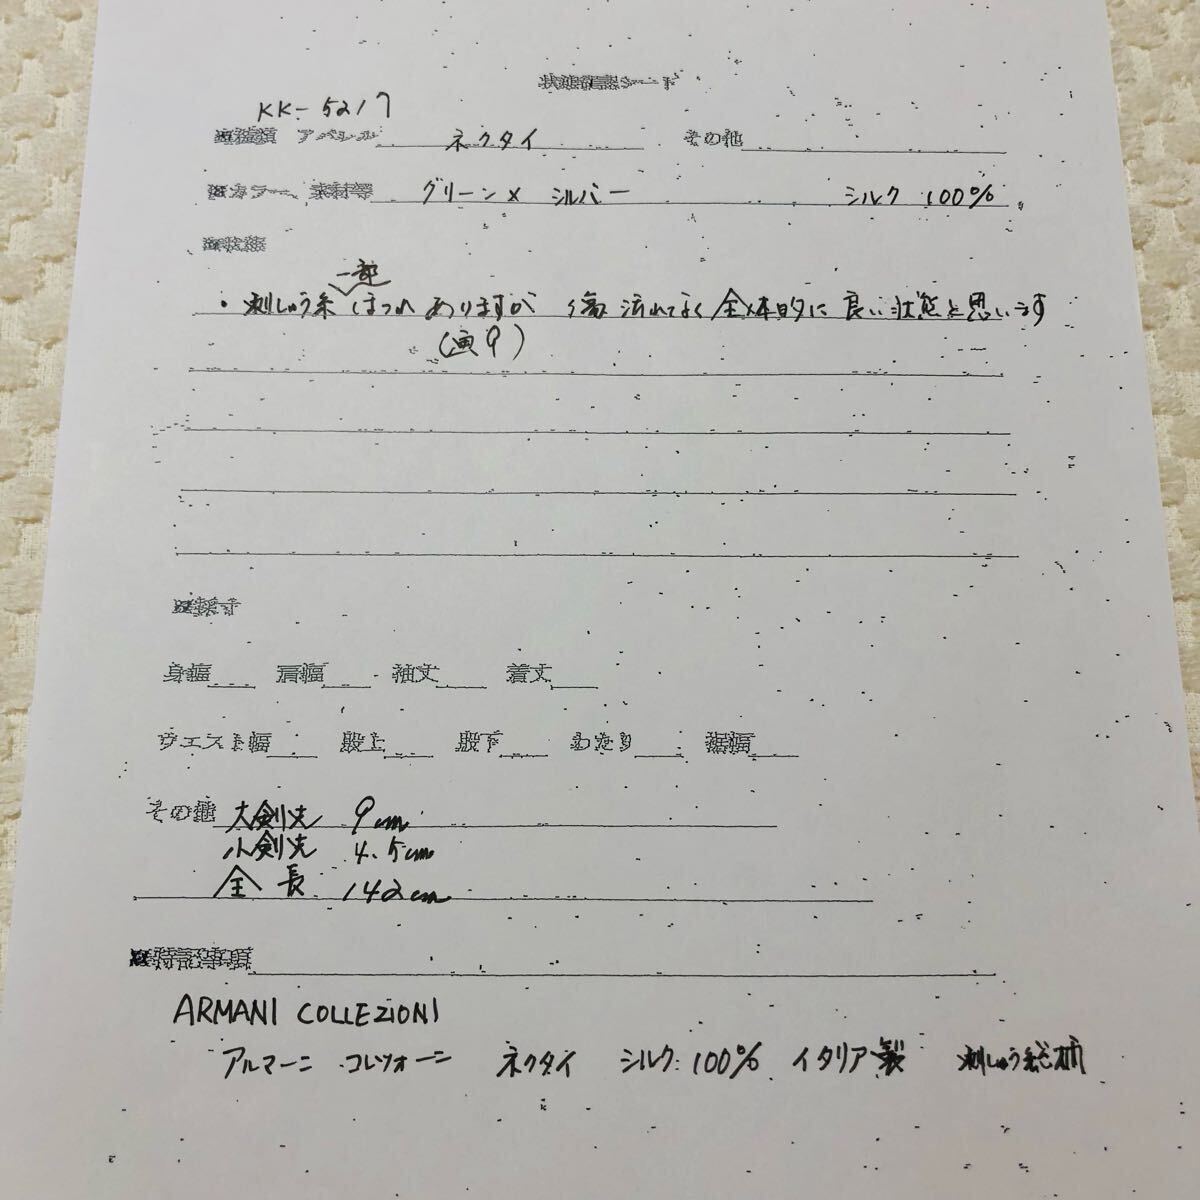 状態確認シート
KK-5217
■種類 アパレル ネクタイ その他
■カラー、素材等 グリーン× シルバー シルク 100%
■状態
一部
・刺しゅう糸 ほつれ ありますが 傷 汚れなく 全体的に 良い状態と思います
(画9)
■採寸
身幅 肩幅 袖丈 着丈
ウエスト幅 股上 股下 わたり 裾幅
その他 大剣先 9cm
小剣先 4.5cm
全長 142cm
■特記事項
ARMANI COLLEZIONI
アルマーニ コレツォーニ ネクタイ シルク:100% イタリア製 刺しゅう総柄